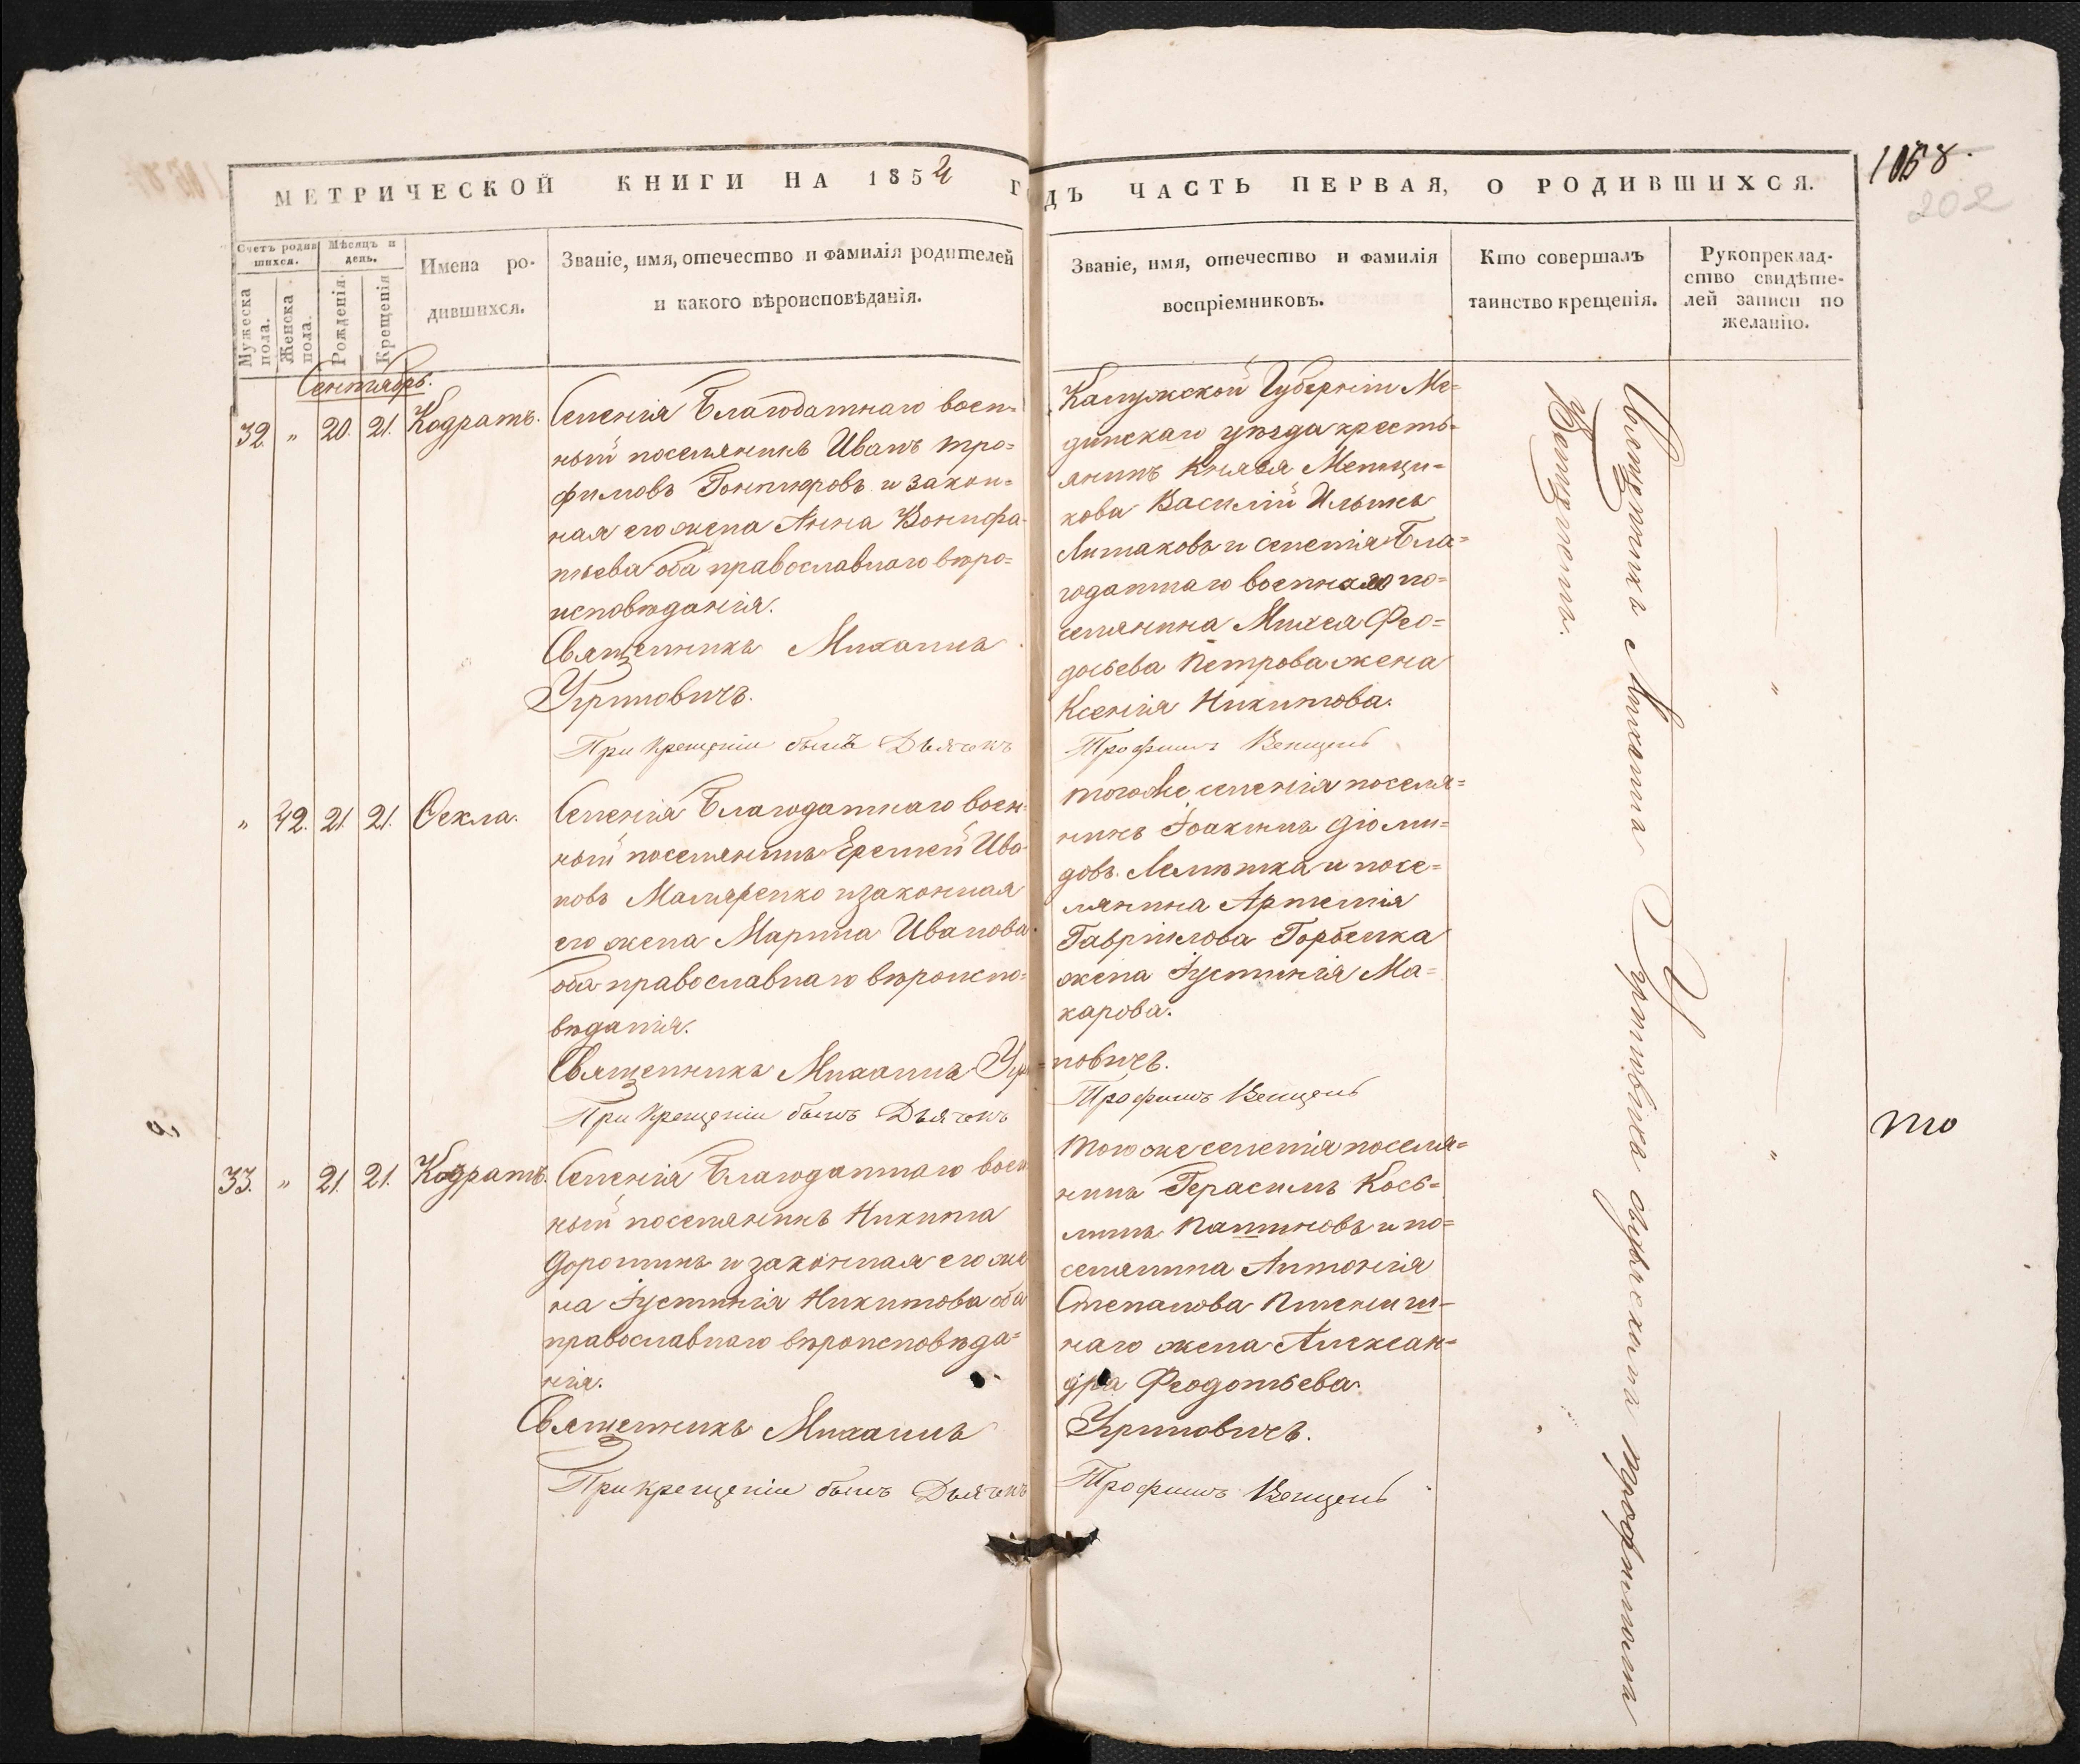 МЕТРИЧЕСКОЙ КНИГИ НА 1852 ГОДЪ ЧАСТЬ ПЕРВАЯ, О РОДИВШИХСЯ.
1068.
202
Счетъ родившихся.
Мѣсяцъ и день.
Мужеска пола.
Женска пола.
Рожденія.
Крещенія
Имена родившихся.
Званіе, имя, отечество и фамилія родителей
и какого вѣроисповѣданія.
Званіе, имя, отечество и фамилія
воспріемниковъ.
Кто совершалъ
таинство крещенія.
Рукоприклад-
ство свидѣте-
лей записи по
желанію.
Сентябрь.
32. " 20. 21. Кодратъ.
Селенія Благодатнаго воен-
ный поселянинъ Иванъ Тро-
фимовъ и закон-
ная его жена Анна Вонифа-
тьева оба православнаго вѣро-
исповѣданія.
Священникъ Михаилъ
Угриновичъ.
При крещеніи былъ Дьячекъ
Калужской Губерніи Ме-
динскаго уѣзда кресть-
янинъ Князя Менщи-
кова Василій Ильинъ
и селенія Бла-
годатнаго военнаго по-
селянина Михея Фео-
досьева Петрова жена
Ксенія Никитова.
Трофимъ Венцель
" 42. 21. 21. Ѳекла.
Селенія Благодатнаго воен-
ный поселянинъ Еремей Ива-
новъ Маляренко и законная
его жена Марина Иванова
оба православнаго вѣроиспо-
вѣданія.
Священникъ Михаилъ Угри-
При крещеніи былъ Дьячекъ
тогоже селенія поселя-
нинъ Іоакимъ Діоми-
довъ и посе-
лянина Артемія
Гавріилова Горбенка
жена Іустинія Ма-
карова.
новичъ.
Трофимъ Венцель
33. " 21. 21. Кодратъ.
Селенія Благодатнаго воен
ный поселянинъ Никита
Доропинъ и законная его же
на Іустинія Никитова оба
православнаго вѣроисповѣда-
нія.
Священникъ Михаилъ
При крещеніи былъ Дьячекъ
Тогоже селенія поселя-
нинъ Герасимъ Кось-
минъ и по-
селянина Антонія
Степанова
наго жена Алексан-
дра Феодотьева.
Угриновичъ.
Трофимъ Венцель
Священникъ Михаилъ Угриновичъ съ дьячекомъ Трофимомъ
Венцелемъ.
"
"
то